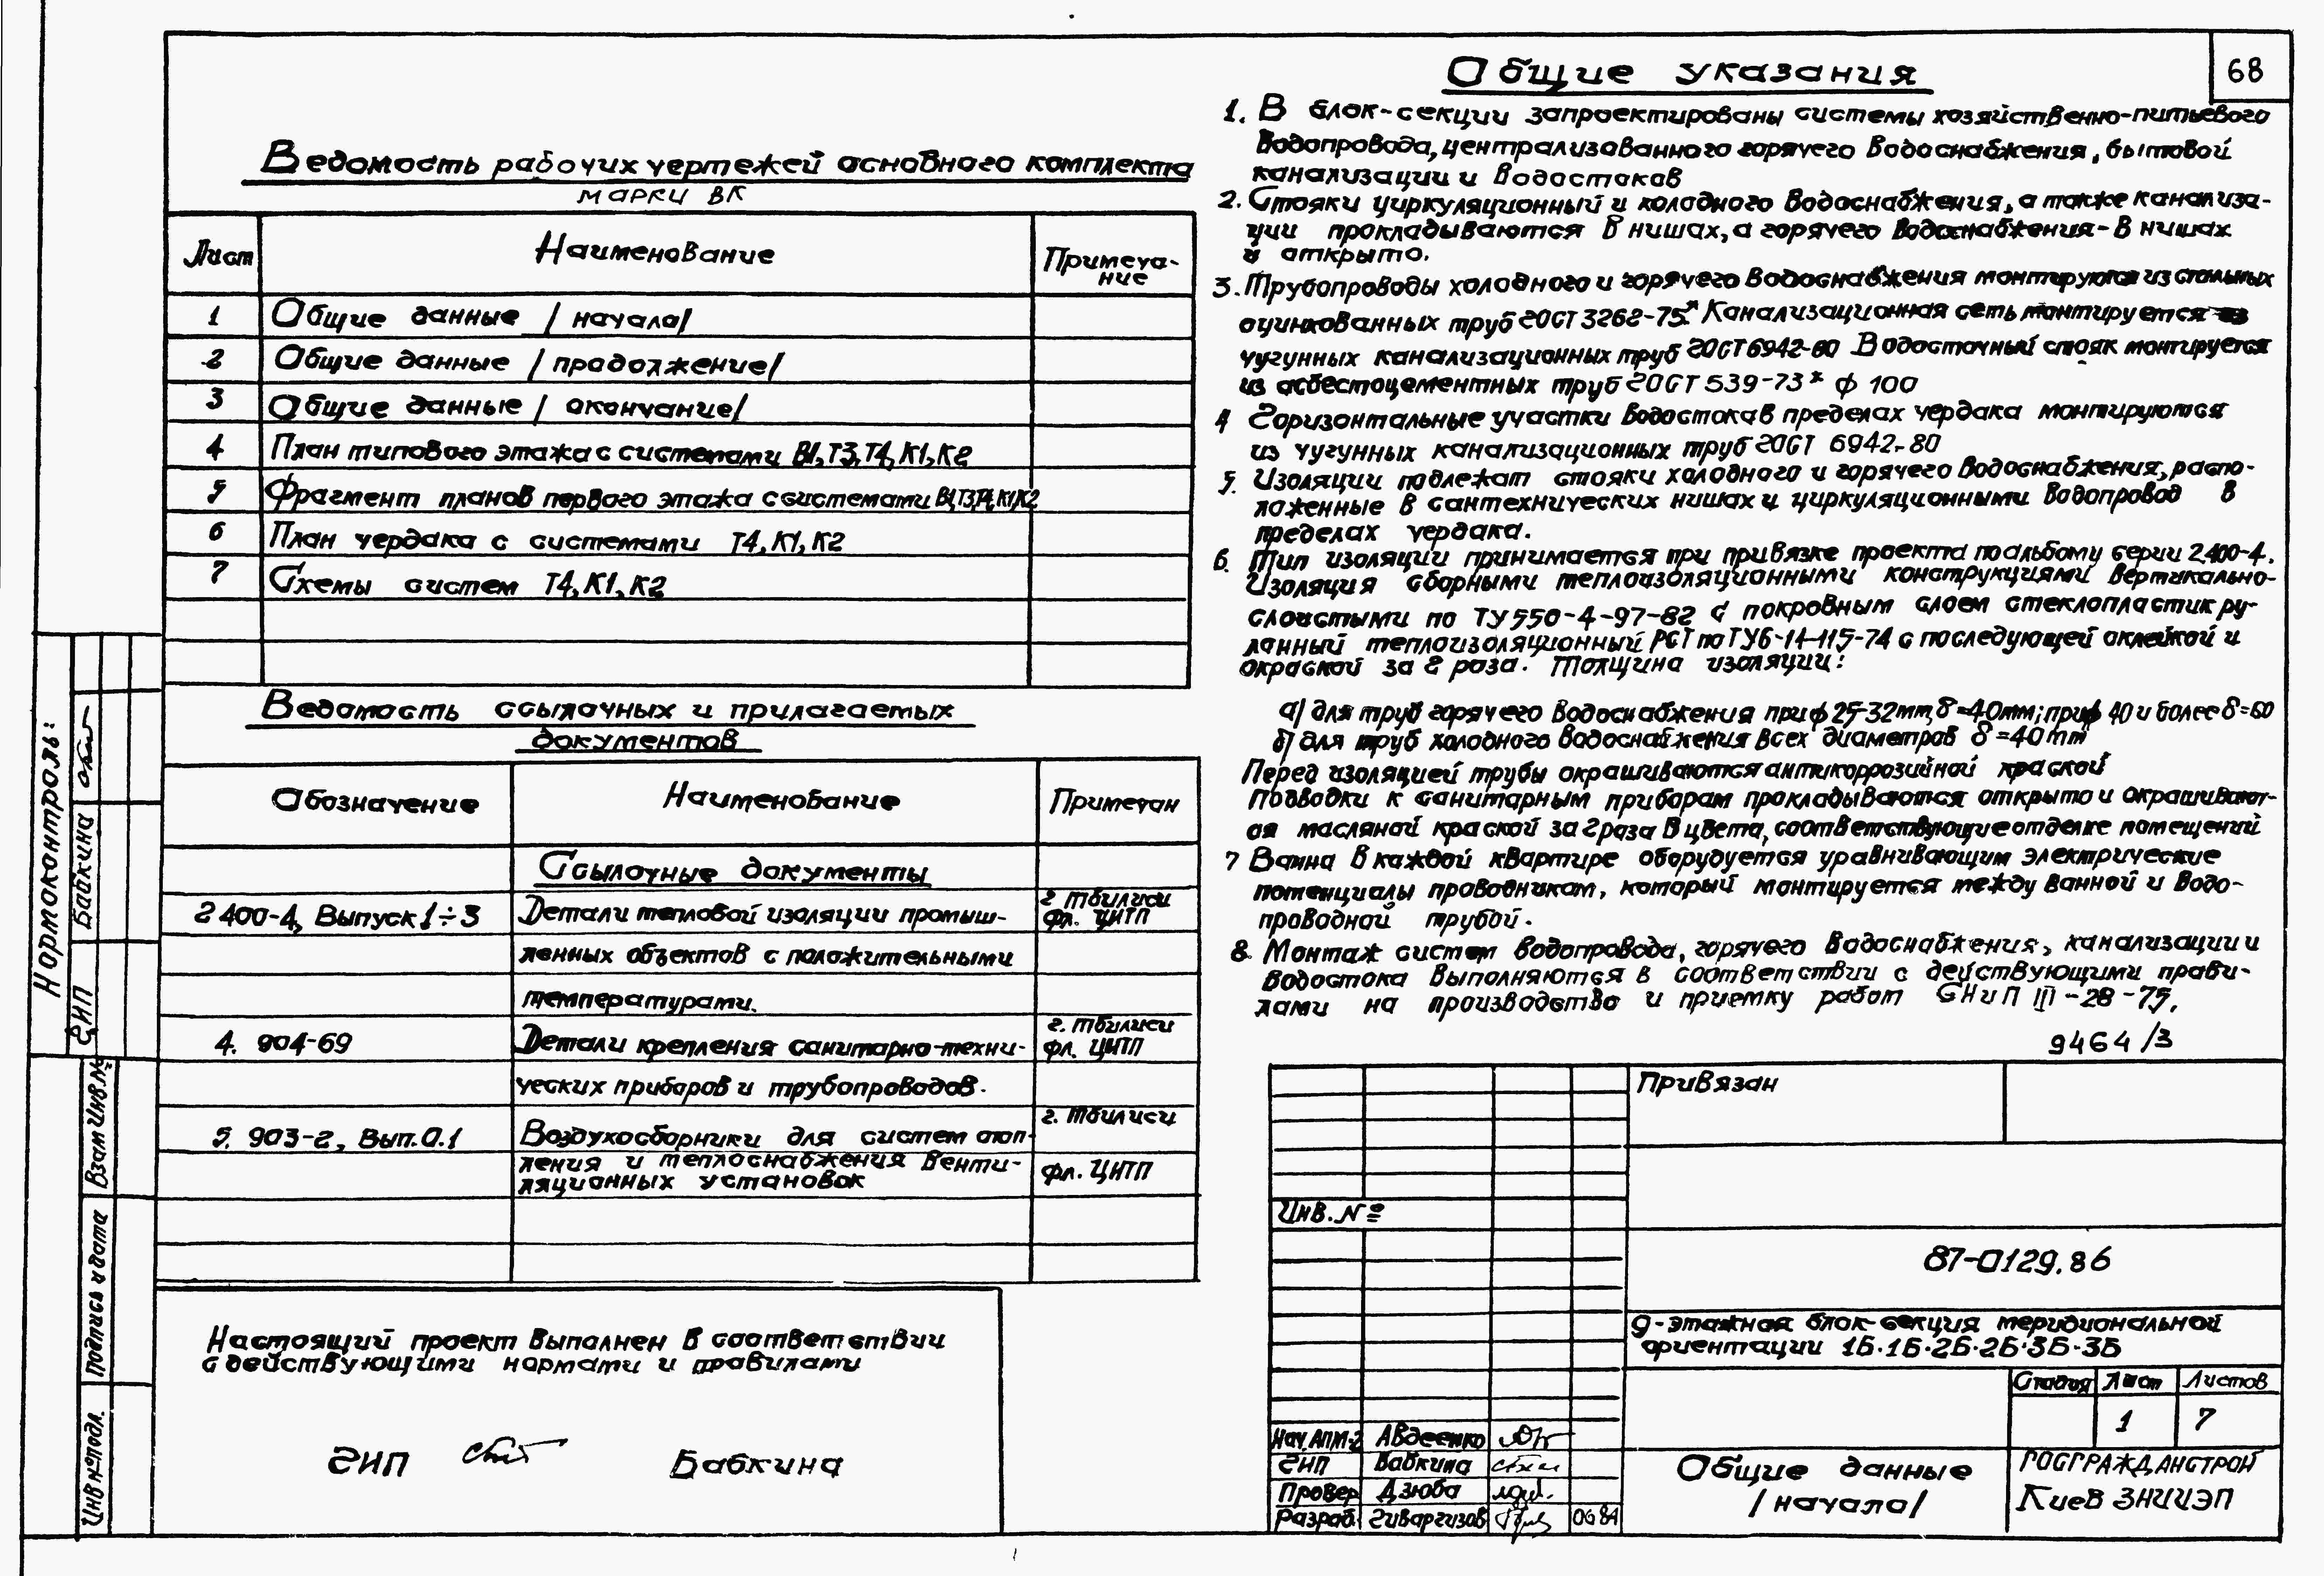 68
Ведомость рабочих чертежей основного комплекта
марки ВК
Лист
Наименование
Примеча-
ние
1
Общие данные /начало/
2
Общие данные /продолжение/
3
Общие данные /окончание/
4
План типового этажа с системами В1,Т3,Т4,К1,К2
5
Фрагмент планов первого этажа с системами В1,Т3,Т4,К1,К2
6
План чердака с системами Т4,К1,К2
7
Схемы систем Т4,К1,К2
Ведомость ссылочных и прилагаемых
документов
Обозначение
Наименование
Примечан
Ссылочные документы
2 400-4, Выпуск 1÷3
Детали тепловой изоляции промыш-
ленных объектов с положительными
температурами.
г Тбилиси
фл. ЦИТП
4. 904-69
Детали крепления санитарно-техни-
ческих приборов и трубопроводов.
г. Тбилиси
фл. ЦИТП
5. 903-2, Вып.0.1
Воздухосборники для систем отоп-
ления и теплоснабжения венти-
ляционных установок
г. Тбилиси
фл. ЦИТП
Настоящий проект выполнен в соответствии
с действующими нормами и правилами
ГИП
Бабкина
Общие указания
1. В блок-секции запроектированы системы хозяйственно-питьевого
водопровода, централизованного горячего водоснабжения, бытовой
канализации и водостоков
2. Стояки циркуляционный и холодного водоснабжения, а также канализа-
ции прокладываются в нишах, а горячего водоснабжения-в нишах
и открыто.
3. Трубопроводы холодного и горячего водоснабжения монтируются из стальных
оцинкованных труб ГОСТ 3262-75* Канализационная сеть монтируется из
чугунных канализационных труб ГОСТ 6942-80 Водосточный стояк монтируется
из асбестоцементных труб ГОСТ 539-73* ф 100
4 Горизонтальные участки водостока в пределах чердака монтируются
из чугунных канализационных труб ГОСТ 6942-80
5. Изоляции подлежат стояки холодного и горячего водоснабжения, распо-
ложенные в сантехнических нишах и циркуляционными водопровод в
пределах чердака.
6. Тип изоляции принимается при привязке проекта по альбому серии 2.400-4.
Изоляция сборными теплоизоляционными конструкциями вертикально-
слоистыми по ТУ 550-4-97-82 с покровным слоем стеклопластик ру-
лонный теплоизоляционный РСТ по ТУ6-11-115-74 с последующей оклейкой и
окраской за 2 раза. Толщина изоляции:
а/ для труб горячего водоснабжения при ф 25-32mm δ=40mm; при ф 40 и более δ=60
б/ для труб холодного водоснабжения всех диаметров δ=40mm
Перед изоляцией трубы окрашиваются антикоррозийной краской
Подводки к санитарным приборам прокладываются открыто и окрашивают-
ся масляной краской за 2 раза в цвета, соответствующие отделке помещений
7 Ванна в каждой квартире оборудуется уравнивающим электрические
потенциалы проводником, который монтируется между ванной и водо-
проводной трубой.
8. Монтаж систем водопровода, горячего водоснабжения, канализации и
водостока выполняются в соответствии с действующими прави-
лами на производство и приемку работ СНиП III-28-75.
9464/3
Привязан
Инв. №
87-0129.86
9-этажная блок-секция меридиональной
ориентации 1Б.1Б.2Б.2Б.3Б.3Б
Стадия
Лист
Листов
1
7
Нач. АПМ-2 Авдеенко
ГИП Бабкина
Провер Дзюба
Разраб. Гиваргизов 06 84
Общие данные
/начало/
ГОСГРАЖДАНСТРОЙ
КиевЗНИИЭП
Нормоконтроль:
ГИП Бабкина
Взам Инв.№
Подпись и дата
Инв № подл.